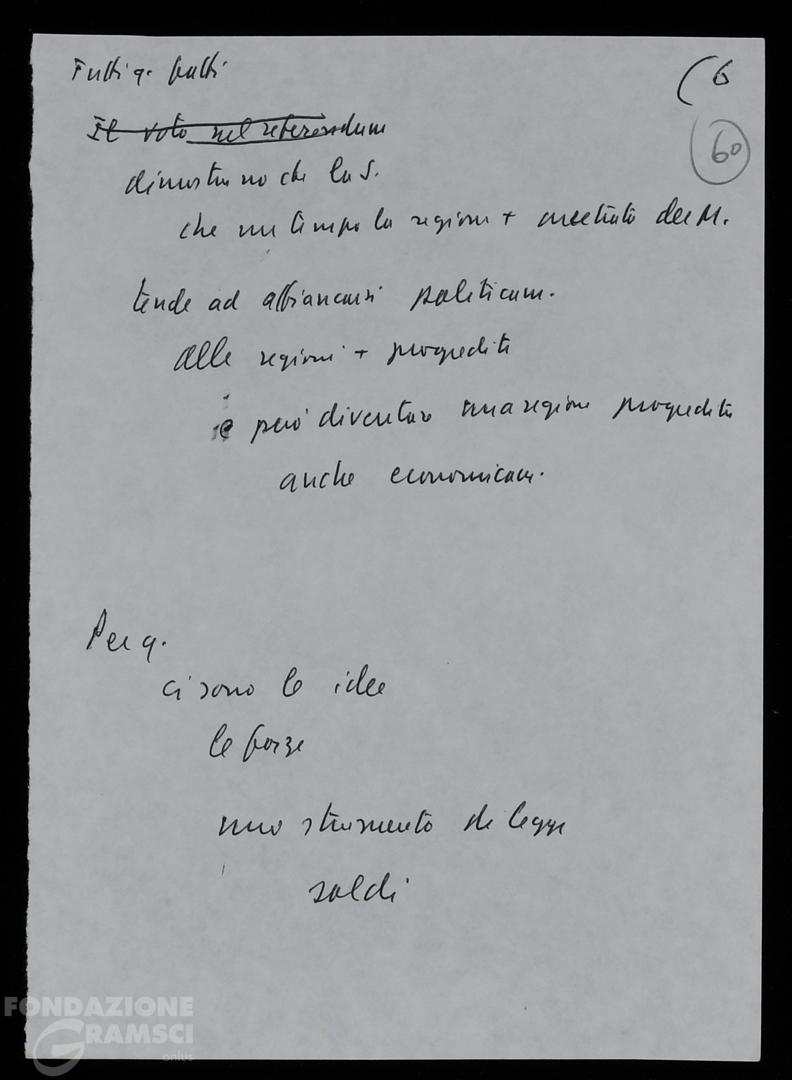 Tutti q. fatti
(6
60
Il voto nel referendum
dimostrano che la S.
che un tempo la regione + arretrata del M.
tende ad affiancarsi politicam.
alle regioni + progredite
e può diventare una regione progredita
anche economicam.
Per q.
ci sono le idee
le forze
uno strumento di legge
soldi
FONDAZIONE
GRAMSCI
onlus